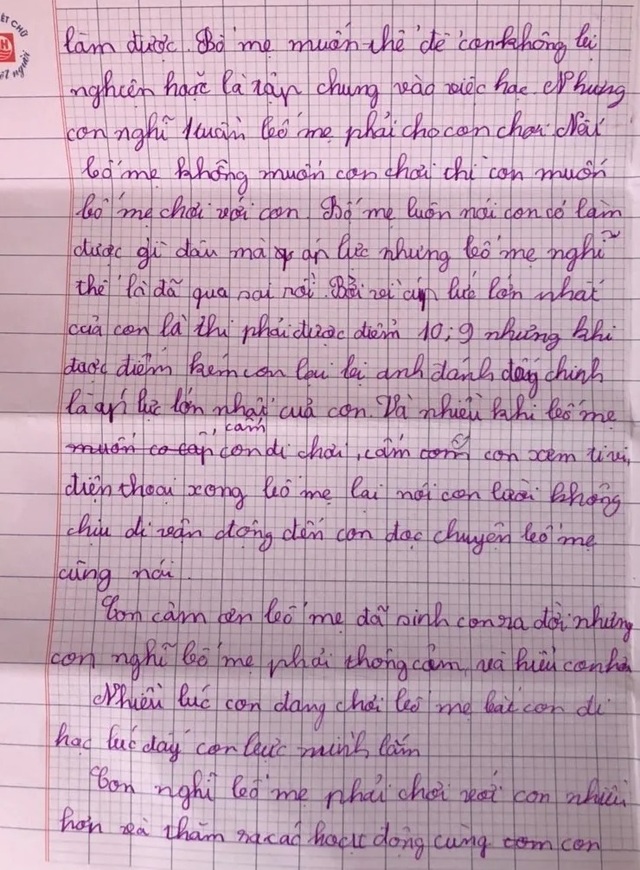 ẾT CHỮ
người
làm được. Bố mẹ muốn thế để con không lại
nghiện hoặc là tập chung vào việc học. Nhưng
con nghĩ 1 tuần bố mẹ phải cho con chơi. Nếu
bố mẹ không muốn con chơi chỉ con muốn
bố mẹ chơi với con. Bố mẹ luôn nói con có làm
được gì đâu mà áp lực nhưng bố mẹ nghĩ
thế là đã quá sai rồi. Bởi vì áp lực lớn nhất
của con là thi phải được điểm 10; 9 nhưng khi
được điểm kém con lại bị anh đánh đấy chính
là áp lực lớn nhất của con. Và nhiều khi bố mẹ
, cấm
muốn co cấp con đi chơi, cấm con xem tivi,
điện thoại xong bố mẹ lại nói con lười không
chịu đi vận động đến con đọc chuyện bố mẹ
cũng nói.
Con cảm ơn bố mẹ đã sinh con ra đời nhưng
con nghĩ bố mẹ phải thông cảm và hiểu con hơn
Nhiều lúc con đang chơi bố mẹ bắt con đi
học lúc đấy con bực mình lắm
Con nghĩ bố mẹ phải chơi với con nhiều
hơn và thăm ra các hoạt động cùng com con